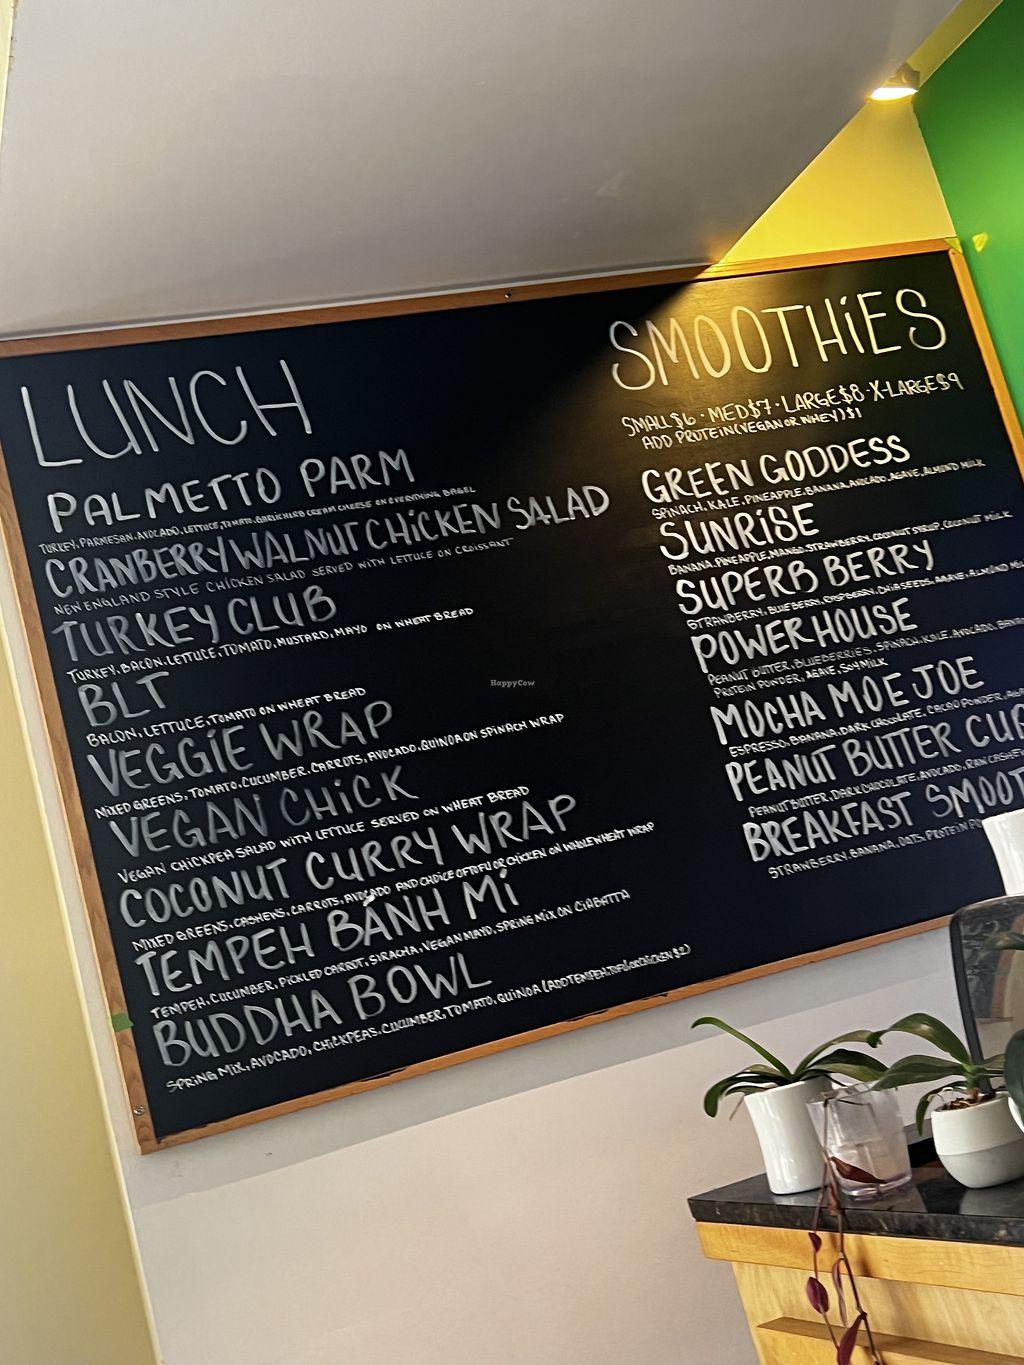 LUNCH
PALMETTO PARM
TURKEY, PARMESAN, AVOCADO, LETTUCE, TOMATO, GARLIC HERB CREAM CHEESE ON EVERYTHING BAGEL
CRANBERRY WALNUT CHiCKEN SALAD
NEW ENGLAND STYLE CHICKEN SALAD SERVED WITH LETTUCE ON CROISSANT
TURKEY CLUB
TURKEY, BACON, LETTUCE, TOMATO, MUSTARD, MAYO ON WHEAT BREAD
BLT
BACON, LETTUCE, TOMATO ON WHEAT BREAD
VEGGiE WRAP
MIXED GREENS, TOMATO, CUCUMBER, CARROTS, AVOCADO, QUINOA ON SPINACH WRAP
VEGAN CHiCK
VEGAN CHICKPEA SALAD WITH LETTUCE SERVED ON WHEAT BREAD
COCONUT CURRY WRAP
MIXED GREENS, CASHEWS, CARROTS, AVOCADO AND CHOICE OF TOFU OR CHICKEN ON WHOLE WHEAT WRAP
TEMPEH BÁNH Mi
TEMPEH, CUCUMBER, PICKLED CARROT, SIRACHA, VEGAN MAYO, SPRING MIX ON CIABATTA
BUDDHA BOWL
SPRING MIX, AVOCADO, CHICKPEAS, CUCUMBER, TOMATO, QUINOA (ADD TEMPEH, TOFU OR CHICKEN $2)
SMOOTHiES
SMALL $6 · MED $7 · LARGE $8 · X-LARGE $9
ADD PROTEIN (VEGAN OR WHEY) $1
GREEN GODDESS
SPINACH, KALE, PINEAPPLE, BANANA, AVOCADO, AGAVE, ALMOND MILK
SUNRiSE
BANANA, PINEAPPLE, MANGO, STRAWBERRY, COCONUT SYRUP, COCONUT MILK
SUPERB BERRY
STRAWBERRY, BLUEBERRY, RASPBERRY, CHIA SEEDS, AGAVE, ALMOND
POWERHOUSE
PEANUT BUTTER, BLUEBERRIES, SPINACH, KALE, AVOCADO,
PROTEIN POWDER, AGAVE, SOY MILK
MOCHA MOE JOE
ESPRESSO, BANANA, DARK CHOCOLATE, CACAO POWDER,
PEANUT BUTTER CUP
PEANUT BUTTER, DARK CHOCOLATE, AVOCADO, RAW
BREAKFAST SMOOT
STRAWBERRY, BANANA, OATS, PROTEIN
HappyCow